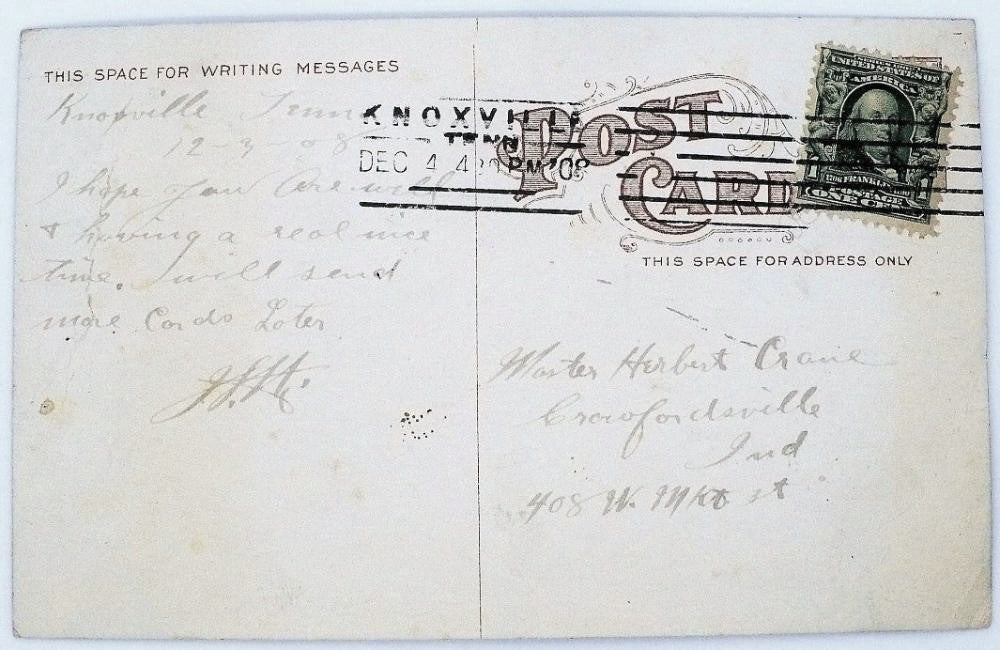 THIS SPACE FOR WRITING MESSAGES
Knoxville Tenn
12 - 3 - 08
I hope you are well
& having a real nice
time. I will send
more Cards Later
KNOXVILL
TENN
DEC 4 4 PM '08
POST
CARD
UNITED STATES OF
AMERICA
FRANKLIN
POSTAGE
THIS SPACE FOR ADDRESS ONLY
Master Herbert Crane
Crawfordsville
Ind
408 W. Mkt st